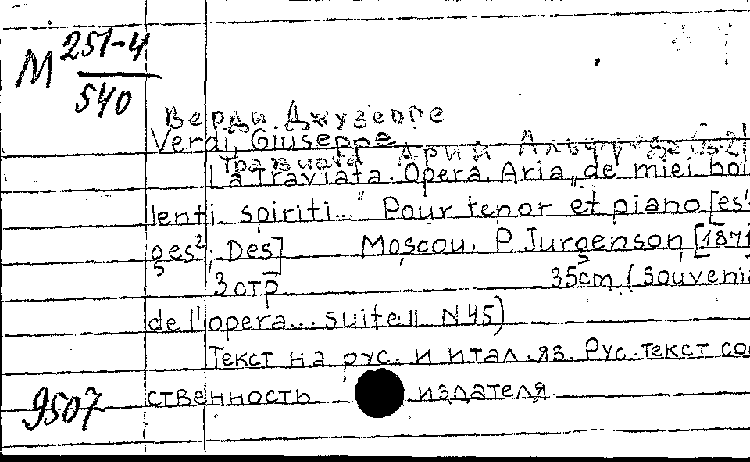 М 251-4
540
Верди Джузеппе
Verdi, Giuseppe
Травиата Ария Альфреда
La Traviata. Opera. Aria „de miei bol
lenti spiriti..." Pour tenor et piano [es¹
ges²; Des] Moscou. P. Jurgenson [1871]
3 стр 35cm (Souveni
de l'opera... suite II N45)
Текст на рус. и итал. яз. Рус. текст соб
ственность издателя
9507